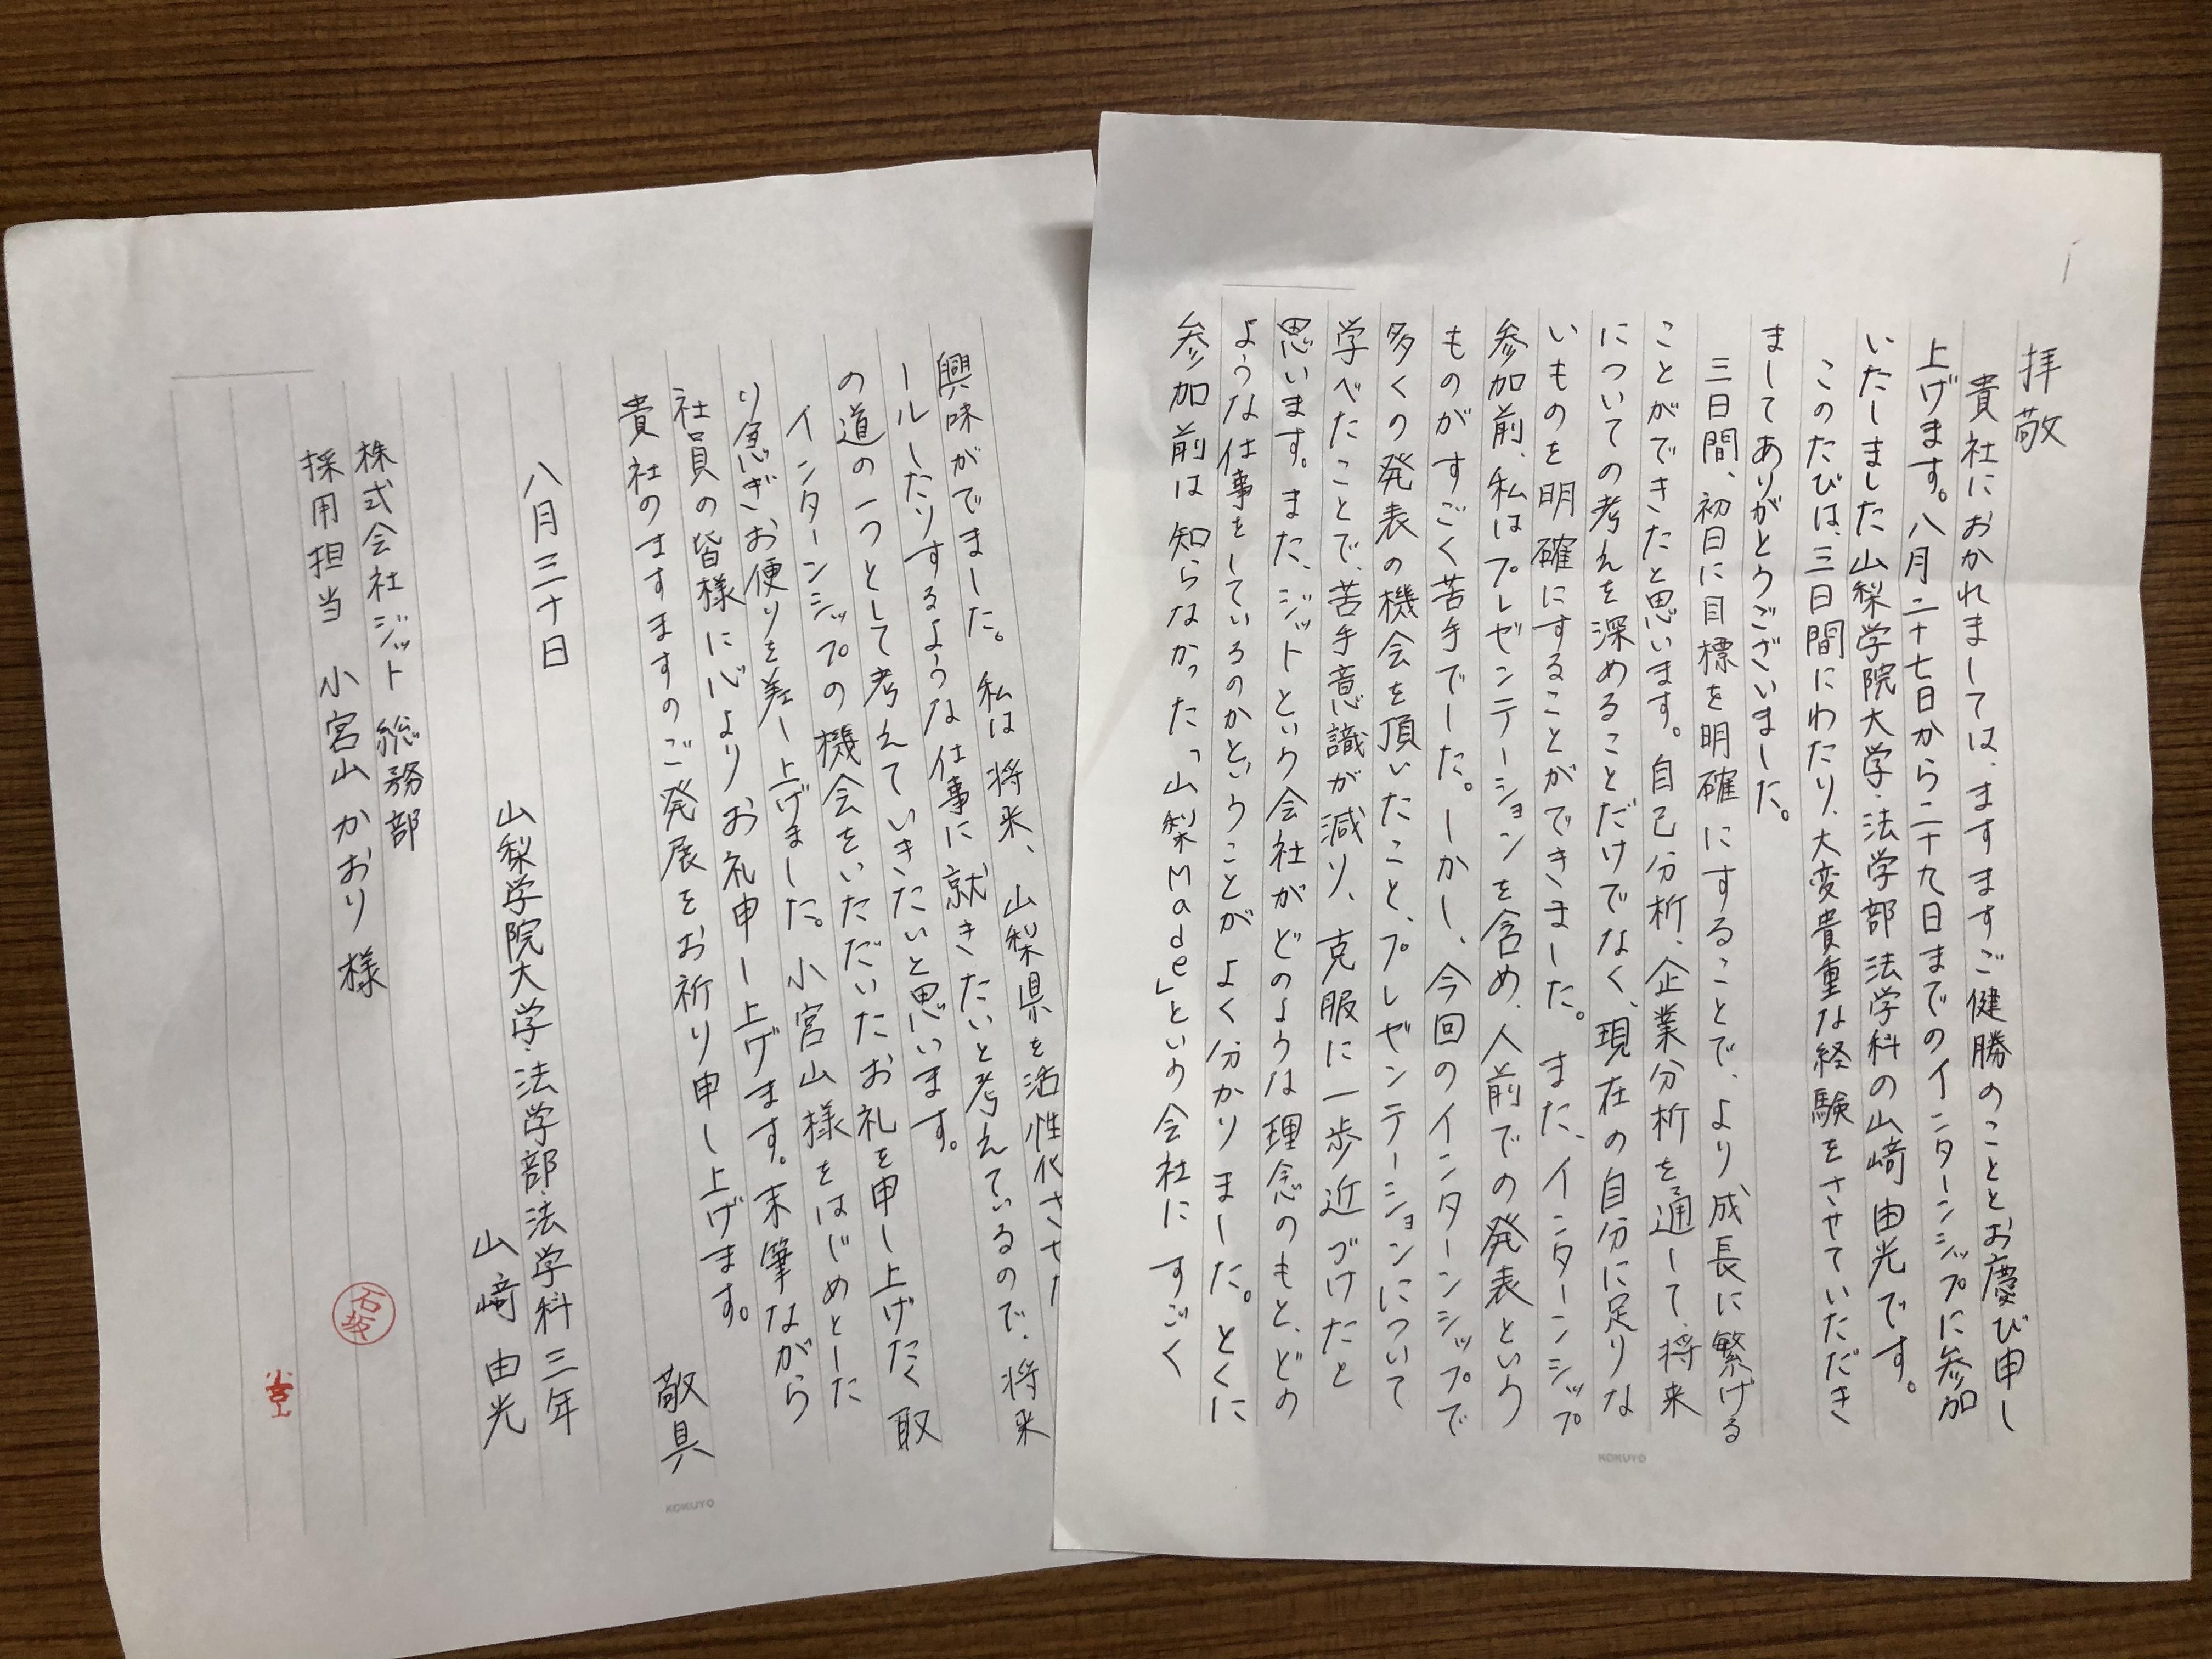 拝敬
貴社におかれましては、ますますご健勝のこととお慶び申し
上げます。八月二十七日から二十九日までのインターンシップに参加
いたしました山梨学院大学・法学部法学科の山﨑由光です。
このたびは、三日間にわたり、大変貴重な経験をさせていただき
ましてありがとうございました。
三日間、初日に目標を明確にすることで、より成長に繋げる
ことができたと思います。自己分析、企業分析を通して、将来
についての考えを深めることだけでなく、現在の自分に足りな
いものを明確にすることができました。また、インターンシップ
参加前、私はプレゼンテーションを含め、人前での発表という
ものがすごく苦手でした。しかし、今回のインターンシップで
多くの発表の機会を頂いたこと、プレゼンテーションについて
学べたことで、苦手意識が減り、克服に一歩近づけたと
思います。また、ジットという会社がどのような理念のもと、どの
ような仕事をしているのかということがよく分かりました。とくに
参加前は知らなかった「山梨Made」という会社にすごく
興味がでました。私は将来、山梨県を活性化させ
ールしたりするような仕事に就きたいと考えているので、将来
の道の一つとして考えていきたいと思います。
インターンシップの機会をいただいたお礼を申し上げたく取
り急ぎお便りを差し上げました。小宮山様をはじめとした
社員の皆様に心よりお礼申し上げます。末筆ながら
貴社のますますのご発展をお祈り申し上げます。
敬具
八月三十日
山梨学院大学・法学部・法学科三年
山﨑 由光
株式会社ジット 総務部
採用担当 小宮山かおり 様
石坂
KOKUYO
KOKUYO